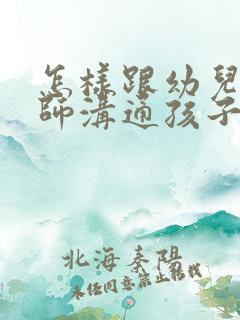 怎樣跟幼兒
師溝通孩子
北海秦陽
未經同意禁止轉載